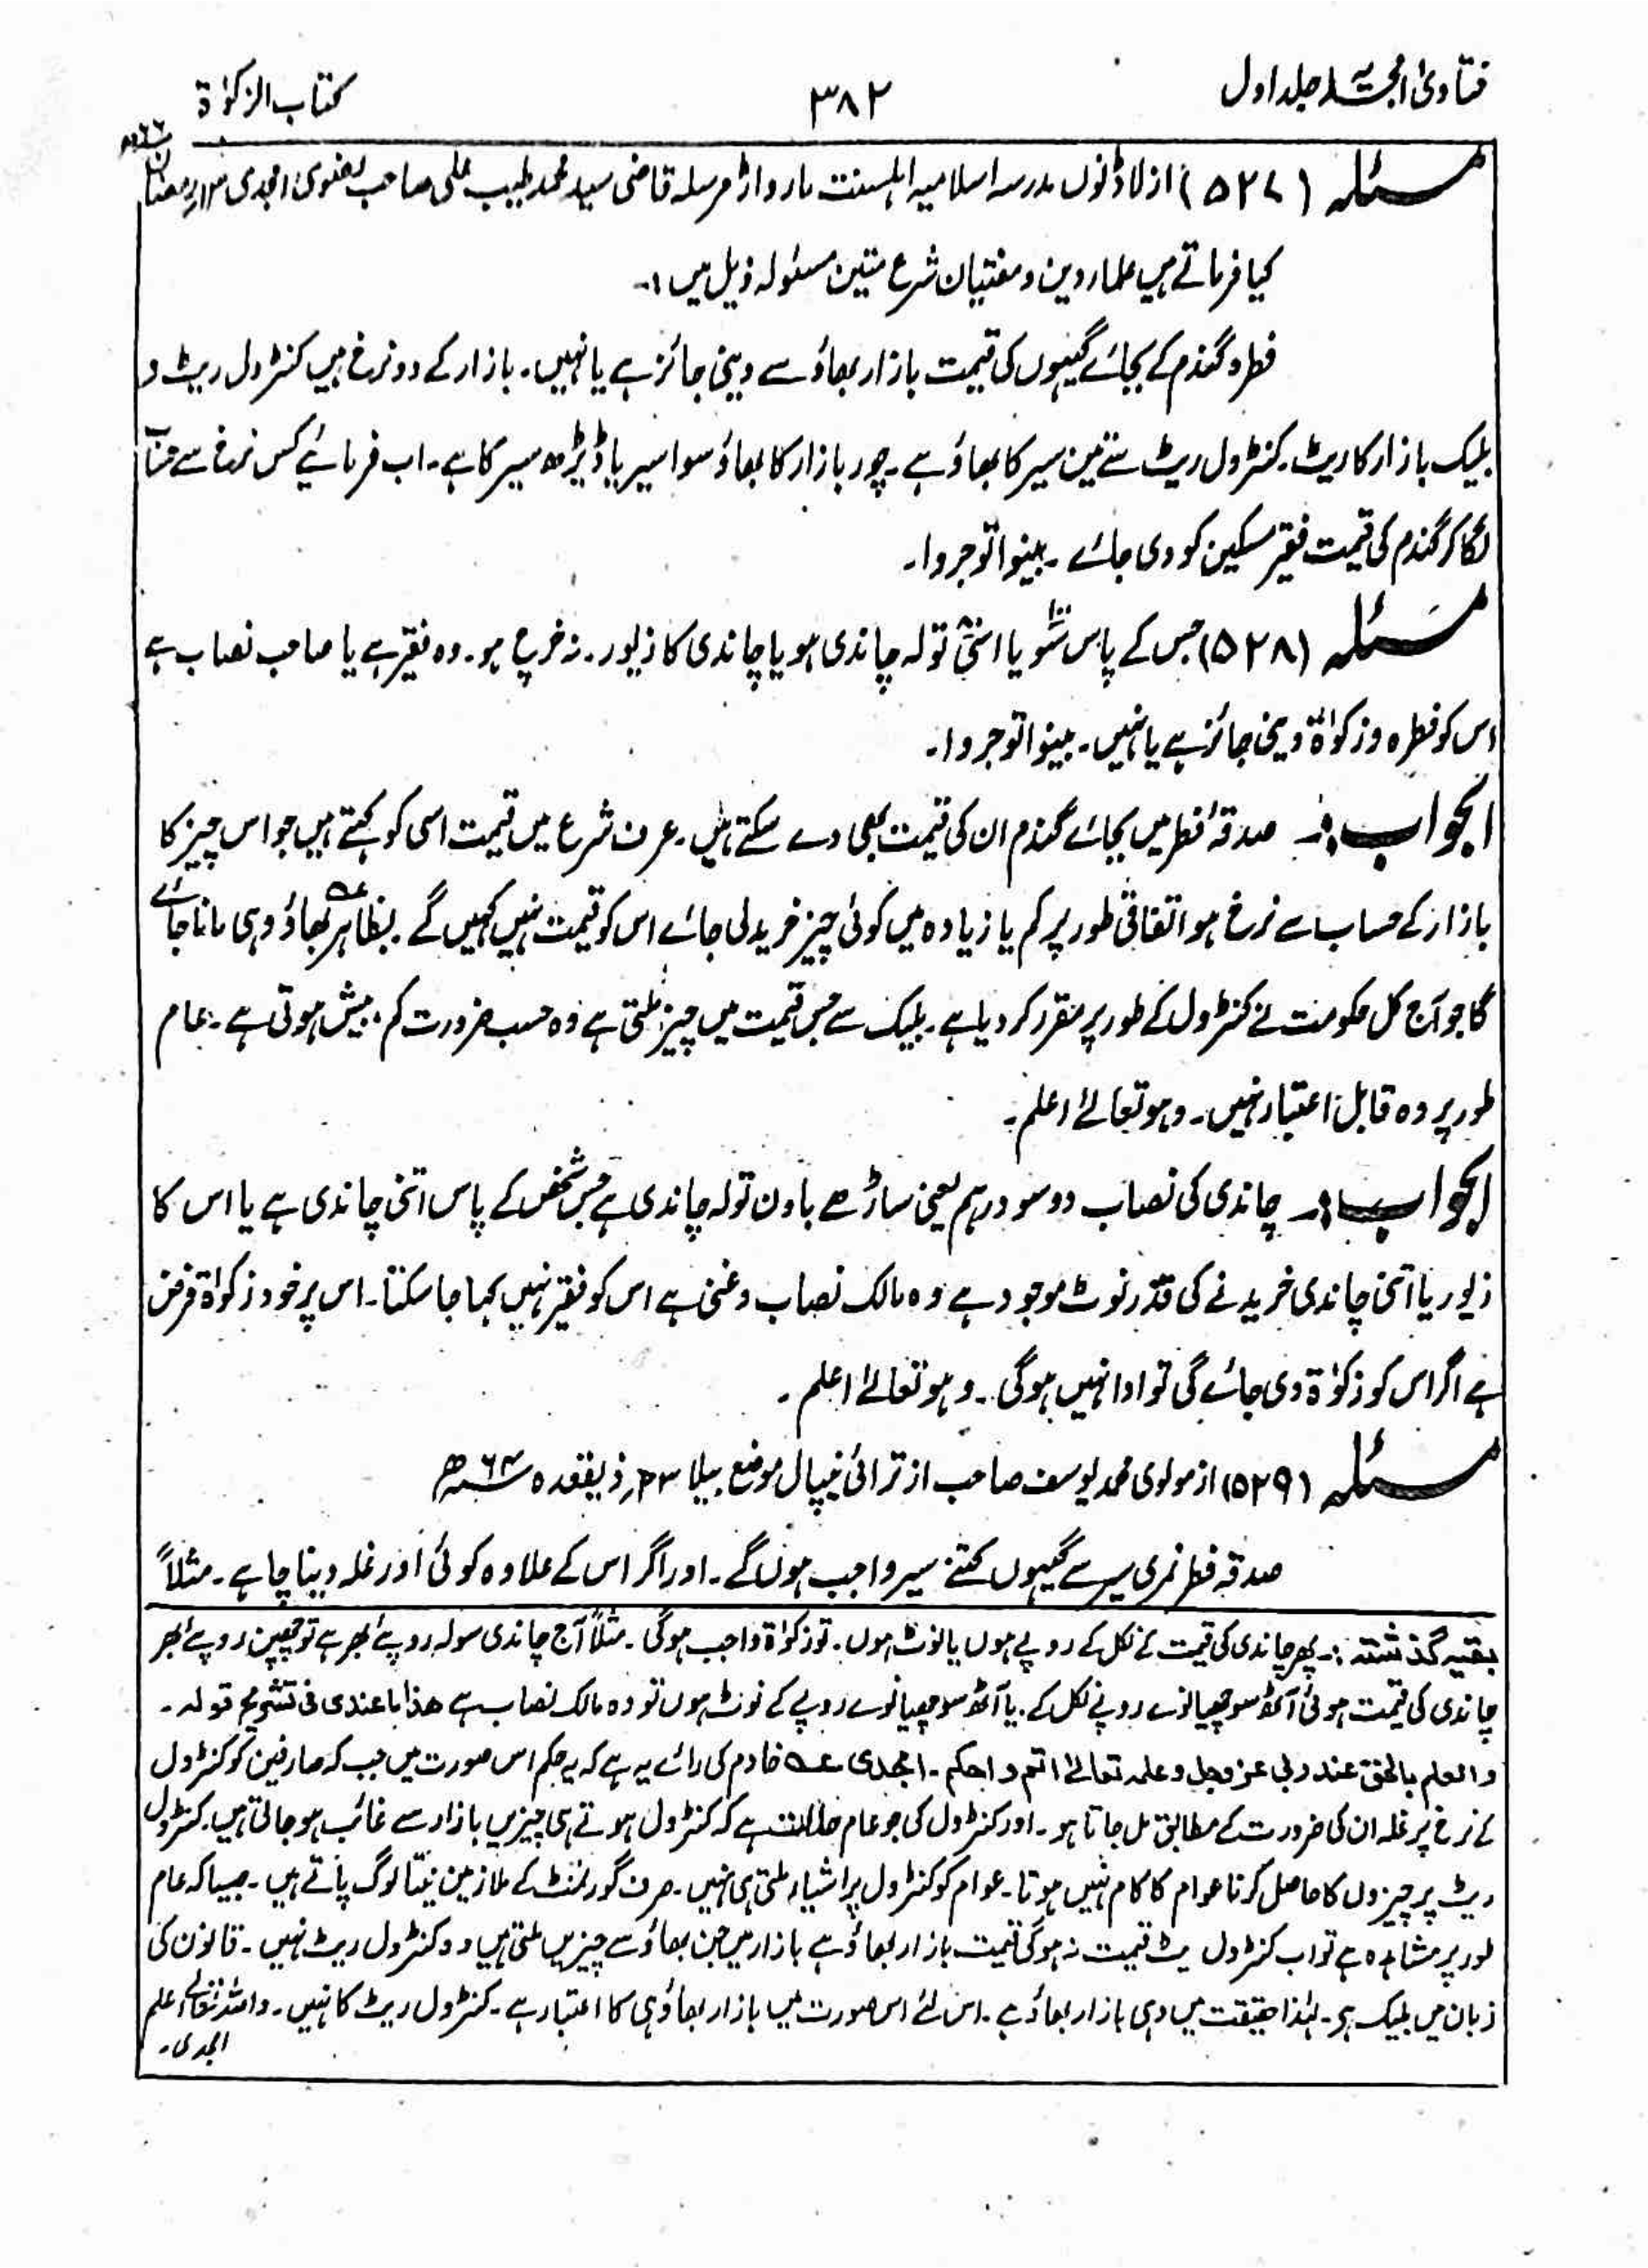 فتاویٰ امجدیہ جلد اول
۳۸۲
کتاب الزکوٰۃ
مسئلہ (۵۲۷) از لاڈنوں مدرسہ اسلامیہ اہلسنت مارواڑ مرسلہ قاضی سید محمد طیب علی صاحب رضوی امجدی رمضان ۶۶ھ
کیا فرماتے ہیں علماء دین و مفتیان شرع متین مسئولہ ذیل میں :-
فطرہ گندم کے بجائے گیہوں کی قیمت بازار بھاؤ سے دینی جائز ہے یا نہیں۔ بازار کے دو نرخ ہیں کنٹرول ریٹ و
بلیک بازار کا ریٹ۔ کنٹرول ریٹ سے تین سیر کا بھاؤ ہے۔ چور بازار کا بھاؤ سوا سیر یا ڈیڑھ سیر کا ہے۔ اب فرمائیے کس نرخ سے حساب
لگا کر گندم کی قیمت فقیر مسکین کو دی جائے۔ بینوا توجروا۔
مسئلہ (۵۲۸) جس کے پاس سَو یا اسّی تولہ چاندی ہو یا چاندی کا زیور۔ نہ خرچ ہو۔ وہ فقیر ہے یا صاحب نصاب ہے
اس کو فطرہ و زکوٰۃ دینی جائز ہے یا نہیں۔ بینوا توجروا۔
الجواب :۔ صدقۂ فطر میں بجائے گندم ان کی قیمت بھی دے سکتے ہیں۔ عرف شرع میں قیمت اسی کو کہتے ہیں جو اس چیز کا
بازار کے حساب سے نرخ ہو اتفاقی طور پر کم یا زیادہ میں کوئی چیز خرید لی جائے اس کو قیمت نہیں کہیں گے۔ بظاہر عہ بھاؤ وہی مانا جائے
گا جو آج کل حکومت نے کنٹرول کے طور پر مقرر کر دیا ہے۔ بلیک سے جس قیمت میں چیز ملتی ہے وہ حسب ضرورت کم و بیش ہوتی ہے۔ عام
طور پر وہ قابل اعتبار نہیں۔ وہو تعالےٰ اعلم۔
الجواب :۔ چاندی کی نصاب دو سو درہم یعنی ساڑھے باون تولہ چاندی ہے جس شخص کے پاس اتنی چاندی ہے یا اس کا
زیور یا اتنی چاندی خریدنے کی قدر نوٹ موجود ہے وہ مالک نصاب و غنی ہے اس کو فقیر نہیں کہا جا سکتا۔ اس پر خود زکوٰۃ فرض
ہے اگر اس کو زکوٰۃ دی جائے گی تو ادا نہیں ہوگی۔ وہو تعالےٰ اعلم۔
مسئلہ (۵۲۹) از مولوی محمد یوسف صاحب از ترائی نیپال موضع بیلا ۲۳؍ ذیقعدہ ۶۴ھ
صدقہ فطر نمری سیر سے گیہوں کتنے سیر واجب ہوں گے۔ اور اگر اس کے علاوہ کوئی اور غلہ دینا چاہے۔ مثلاً
بقیہ گذشتہ :۔ پھر چاندی کی قیمت کے نکل کے روپے ہوں یا نوٹ ہوں۔ تو زکوٰۃ واجب ہوگی۔ مثلاً آج چاندی سولہ روپے بھر ہے تو چھپن روپے بھر
چاندی کی قیمت ہوئی آٹھ سو چھیانوے روپے نکل کے۔ یا آٹھ سو چھیانوے روپے کے نوٹ ہوں تو وہ مالک نصاب ہے ھذا ما عندی فی تشریح قولہ۔
والعلم بالحق عند ربی عز وجل وعلمہ تعالےٰ اتم واحکم۔ امجدی عہ خادم کی رائے یہ ہے کہ یہ حکم اس صورت میں جب کہ صارفین کو کنٹرول
کے نرخ پر غلہ ان کی ضرورت کے مطابق مل جاتا ہو۔ اور کنٹرول کی جو عام حالت ہے کہ کنٹرول ہوتے ہی چیزیں بازار سے غائب ہو جاتی ہیں۔ کنٹرول
ریٹ پر چیزوں کا حاصل کرنا عوام کا کام نہیں ہوتا۔ عوام کو کنٹرول پر اشیاء ملتی ہی نہیں۔ صرف گورنمنٹ کے ملازمین نیتا لوگ پاتے ہیں۔ جیسا کہ عام
طور پر مشاہدہ ہے تو اب کنٹرول یٹ قیمت نہ ہوگی قیمت بازار بھاؤ ہے بازار میں جن بھاؤ سے چیزیں ملتی ہیں وہ کنٹرول ریٹ نہیں۔ قانون کی
زبان میں بلیک ہے۔ لہٰذا حقیقت میں وہی بازار بھاؤ ہے۔ اس لئے اس صورت میں بازار بھاؤ ہی کا اعتبار ہے۔ کنٹرول ریٹ کا نہیں۔ واللہ تعالےٰ اعلم
امجدی۔